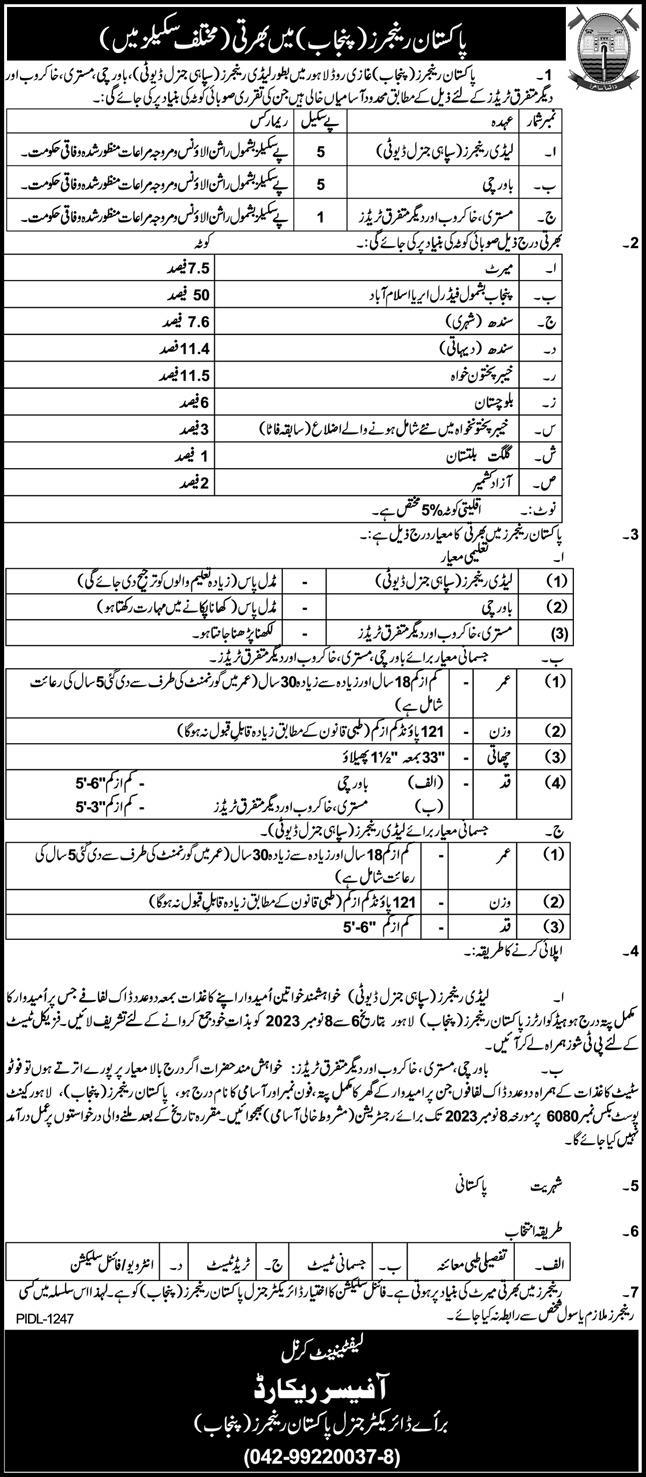 پاکستان رینجرز (پنجاب) میں بھرتی (مختلف سکیلز میں)
1۔ پاکستان رینجرز (پنجاب) غازی روڈ لاہور میں بطور لیڈی رینجرز (سپاہی جنرل ڈیوٹی)، باورچی، مستری، خاکروب اور
دیگر متفرق ٹریڈز کے لئے ذیل کے مطابق محدود آسامیاں خالی ہیں جن کی تقرری صوبائی کوٹہ کی بنیاد پر کی جائے گی:۔
نمبر شمار عہدہ پے سکیل ریمارکس
ا۔ لیڈی رینجرز (سپاہی جنرل ڈیوٹی) 5 پے سکیلز بشمول راشن الاؤنس و مروجہ مراعات منظور شدہ وفاقی حکومت۔
ب۔ باورچی 5 پے سکیلز بشمول راشن الاؤنس و مروجہ مراعات منظور شدہ وفاقی حکومت۔
ج۔ مستری، خاکروب اور دیگر متفرق ٹریڈز 1 پے سکیلز بشمول راشن الاؤنس و مروجہ مراعات منظور شدہ وفاقی حکومت۔
2۔ بھرتی درج ذیل صوبائی کوٹہ کی بنیاد پر کی جائے گی:۔ کوٹہ
ا۔ میرٹ 7.5 فیصد
ب۔ پنجاب بشمول فیڈرل ایریا اسلام آباد 50 فیصد
ج۔ سندھ (شہری) 7.6 فیصد
د۔ سندھ (دیہاتی) 11.4 فیصد
ر۔ خیبر پختون خواہ 11.5 فیصد
ز۔ بلوچستان 6 فیصد
س۔ خیبر پختونخواہ میں نئے شامل ہونے والے اضلاع (سابقہ فاٹا) 3 فیصد
ش۔ گلگت بلتستان 1 فیصد
ص۔ آزاد کشمیر 2 فیصد
نوٹ:۔ اقلیتی کوٹہ 5% مختص ہے۔
3۔ پاکستان رینجرز میں بھرتی کا معیار درج ذیل ہے:۔
ا۔ تعلیمی معیار
(1) لیڈی رینجرز (سپاہی جنرل ڈیوٹی) - مڈل پاس (زیادہ تعلیم والوں کو ترجیح دی جائے گی)
(2) باورچی - مڈل پاس (کھانا پکانے میں مہارت رکھتا ہو)
(3) مستری، خاکروب اور دیگر متفرق ٹریڈز - لکھنا پڑھنا جانتا ہو۔
ب۔ جسمانی معیار برائے باورچی، مستری، خاکروب اور دیگر متفرق ٹریڈز۔
(1) عمر - کم از کم 18 سال اور زیادہ سے زیادہ 30 سال (عمر میں گورنمنٹ کی طرف سے دی گئی 5 سال کی رعائت
شامل ہے)
(2) وزن - 121 پاؤنڈ کم از کم (طبی قانون کے مطابق زیادہ قابلِ قبول نہ ہوگا)
(3) چھاتی - 33" بمعہ 1½" پھیلاؤ
(4) قد - (الف) باورچی - کم از کم 5'-6"
(ب) مستری، خاکروب اور دیگر متفرق ٹریڈز - کم از کم 5'-3"
ج۔ جسمانی معیار برائے لیڈی رینجرز (سپاہی جنرل ڈیوٹی)۔
(1) عمر - کم از کم 18 سال اور زیادہ سے زیادہ 30 سال (عمر میں گورنمنٹ کی طرف سے دی گئی 5 سال کی
رعائت شامل ہے)
(2) وزن - 121 پاؤنڈ کم از کم (طبی قانون کے مطابق زیادہ قابلِ قبول نہ ہوگا)
(3) قد - کم از کم 5'-6"
4۔ اپلائی کرنے کا طریقہ:۔
ا۔ لیڈی رینجرز (سپاہی جنرل ڈیوٹی) خواہشمند خواتین اُمیدوار اپنے کاغذات بمعہ دو عدد ڈاک لفافے جس پر اُمیدوار کا
مکمل پتہ درج ہو ہیڈ کوارٹرز پاکستان رینجرز (پنجاب) لاہور بتاریخ 6 سے 8 نومبر 2023 کو بذاتِ خود جمع کروانے کے لئے تشریف لائیں۔ فزیکل ٹیسٹ
کے لئے پی ٹی شوز ہمراہ لے کر آئیں۔
ب۔ باورچی، مستری، خاکروب اور دیگر متفرق ٹریڈز: خواہش مند حضرات اگر درج بالا معیار پر پورے اترتے ہوں تو فوٹو
سٹیٹ کاغذات کے ہمراہ دو عدد ڈاک لفافوں جن پر امیدوار کے گھر کا مکمل پتہ، فون نمبر اور آسامی کا نام درج ہو، پاکستان رینجرز (پنجاب)، لاہور کینٹ
پوسٹ بکس نمبر 6080 پر مورخہ 8 نومبر 2023 تک برائے رجسٹریشن (مشروط خالی آسامی) بھجوائیں۔ مقررہ تاریخ کے بعد ملنے والی درخواستوں پر عمل درآمد
نہیں کیا جائے گا۔
5۔ شہریت پاکستانی
6۔ طریقہ انتخاب
الف۔ تفصیلی طبی معائنہ ب۔ جسمانی ٹیسٹ ج۔ ٹریڈ ٹیسٹ د۔ انٹرویو/فائنل سلیکشن
7۔ رینجرز میں بھرتی میرٹ کی بنیاد پر ہوتی ہے۔ فائنل سلیکشن کا اختیار ڈائریکٹر جنرل پاکستان رینجرز (پنجاب) کو ہے۔ لہذا اس سلسلہ میں کسی
رینجرز ملازم یا سول شخص سے رابطہ نہ کیا جائے۔
PIDL-1247
لیفٹیننٹ کرنل
آفیسر ریکارڈ
برائے ڈائریکٹر جنرل پاکستان رینجرز (پنجاب)
(042-99220037-8)